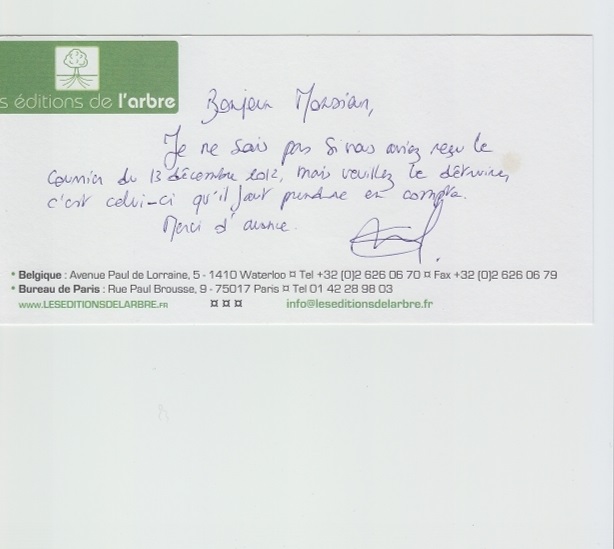 s éditions de l'arbre
Bonjour Monsieur,
Je ne sais pas si vous aviez reçu le
courrier du 13 décembre 2012, mais veuillez le détruire,
c'est celui-ci qu'il faut prendre en compte.
Merci d'avance.
• Belgique : Avenue Paul de Lorraine, 5 - 1410 Waterloo ¤ Tel +32 (0)2 626 06 70 ¤ Fax +32 (0)2 626 06 79
• Bureau de Paris : Rue Paul Brousse, 9 - 75017 Paris ¤ Tel 01 42 28 98 03
www.LESEDITIONSDELARBRE.FR ¤ ¤ ¤ info@leseditionsdelarbre.fr